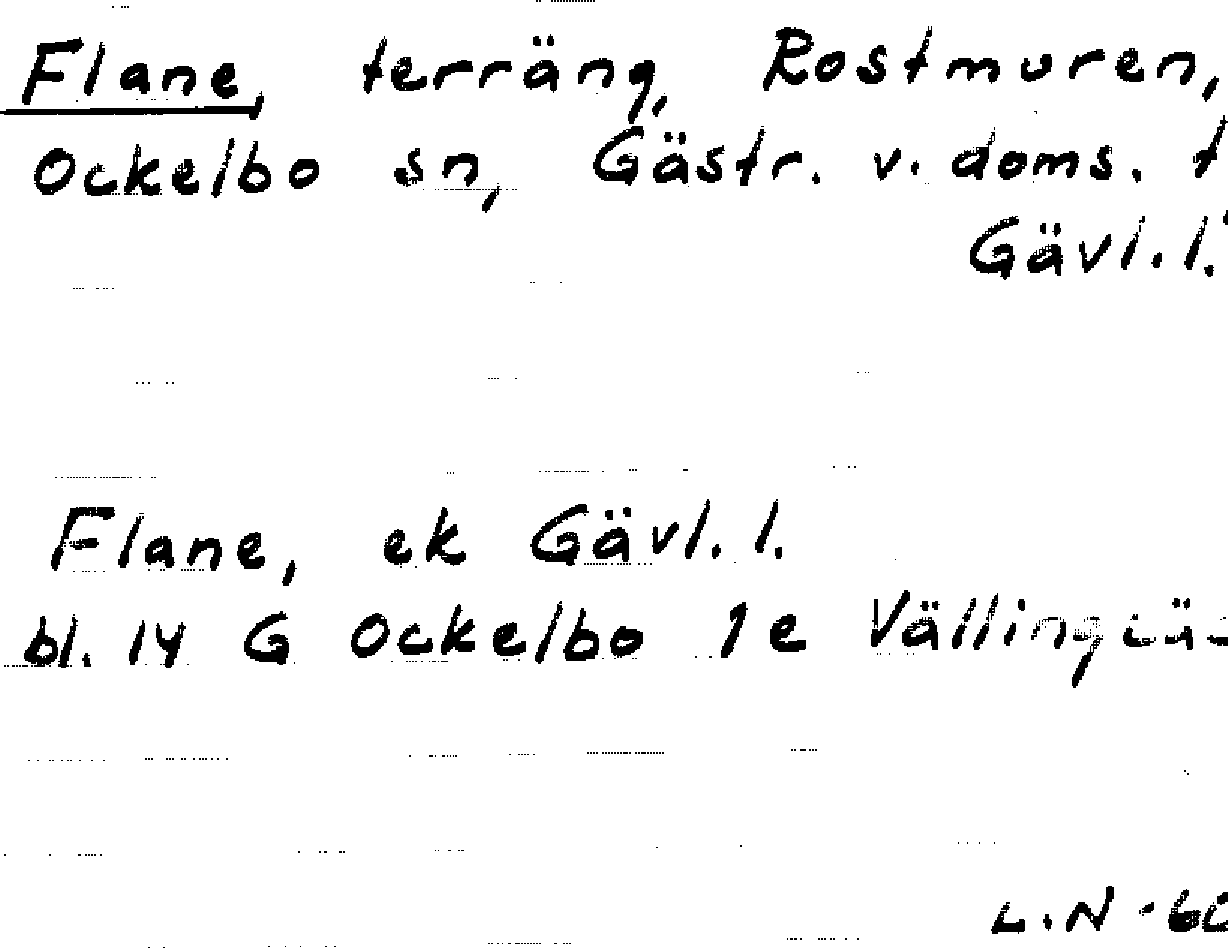 Flane, terräng, Rostmuren,
Ockelbo sn, Gästr. v. doms. t
Gävl. l.
Flane, ek Gävl. l.
bl. 14 G Ockelbo 1e
L.N -60